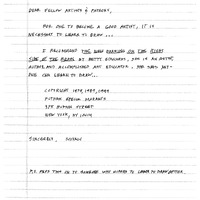 DEAR FELLOW ARTISTS & FRIENDS,
FOR ONE TO BECOME A GOOD ARTIST, IT IS
NECESSARY TO LEARN TO DRAW ...
I RECOMMEND THE NEW DRAWING ON THE RIGHT
SIDE OF THE BRAIN BY BETTY EDWARDS, SHE IS AN ARTIST,
AUTHOR AND ACCOMPLISHED ART EDUCATOR. SHE SAYS ANY-
ONE CAN LEARN TO DRAW ...
COPYRIGHT 1979, 1989, 1999
PUTNAM
375 HUDSON STREET
NEW YORK, NY 10014
SINCERELY,
P.S. PASS THIS ON TO SOMEONE WHO WISHES TO LEARN TO DRAW BETTER.